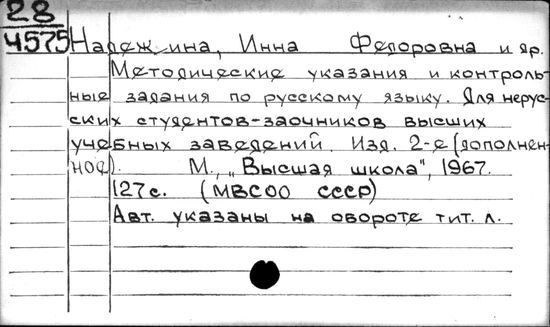 28
4575 Надежина, Инна Федоровна и др.
Методические указания и контроль-
ные задания по русскому языку. Для нерус-
ских студентов-заочников высших
учебных заведений. Изд. 2-е (дополнен-
ное). М., „Высшая школа", 1967.
127с. (МВСОО СССР)
Авт. указаны на обороте тит. л.